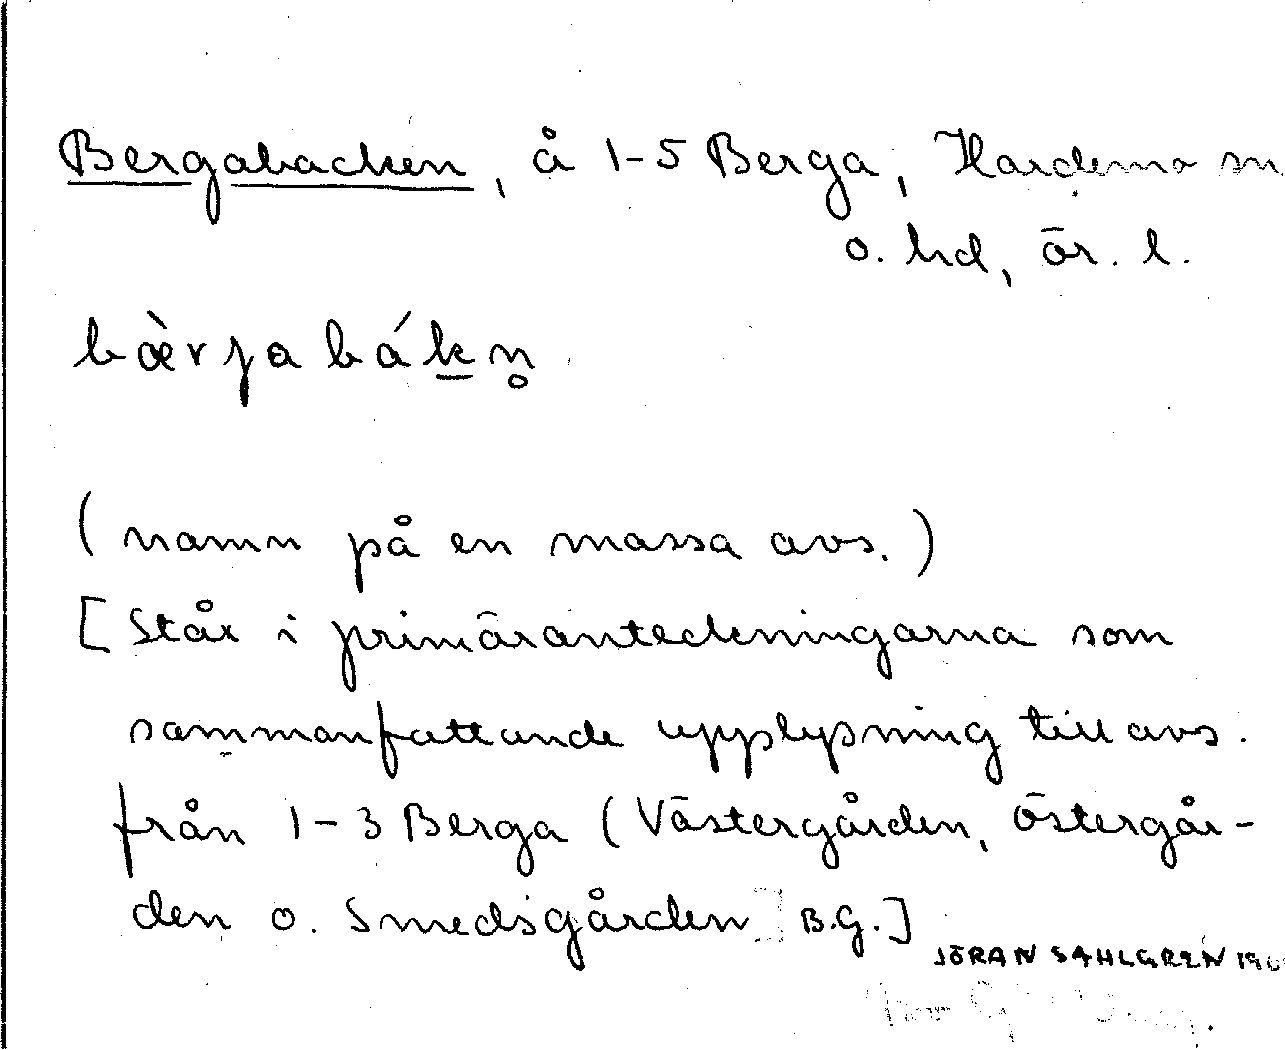 Bergabacken, å 1-5 Berga, Hardemo sn
o. hd, ör. l.
bæ̀rjabák̲n̥
(namn på en massa avs.)
[Står i primäranteckningarna som
sammanfattande upplysning till avs.
från 1-3 Berga (Västergården, Östergår-
den o. Smedsgården B.G.]
JÖRAN SAHLGREN